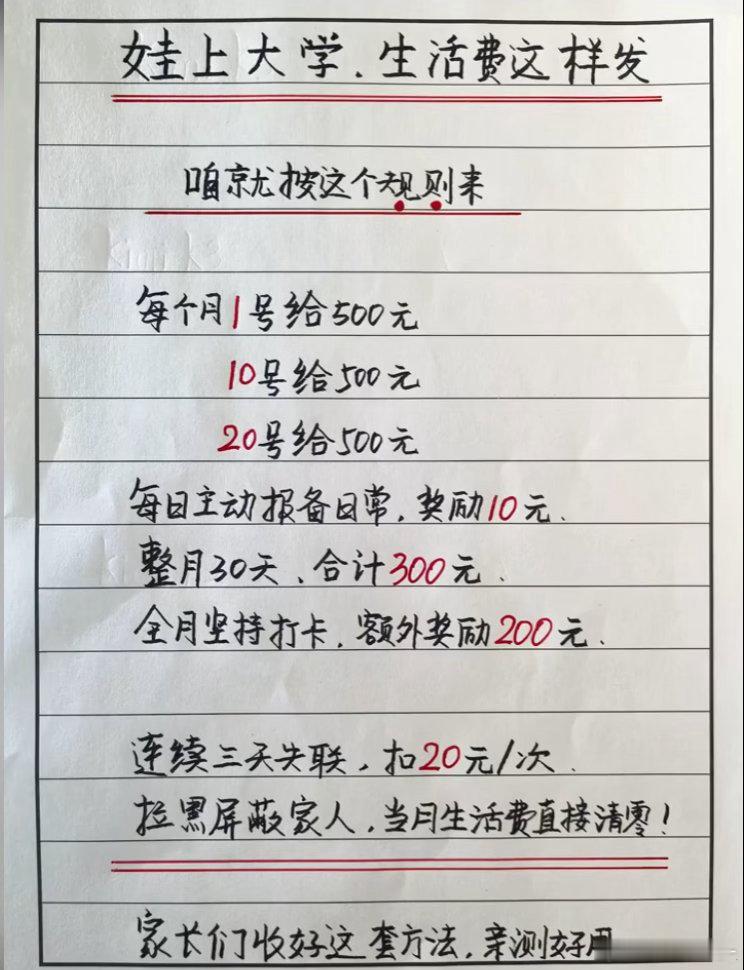 娃上大学.生活费这样发
咱就按这个规则来
每个月1号给500元
10号给500元
20号给500元
每日主动报备日常,奖励10元.
整月30天、合计300元.
全月坚持打卡.额外奖励200元.
连续三天失联,扣20元/次.
拉黑屏蔽家人,当月生活费直接清零!
家长们收好这套方法,亲测好用